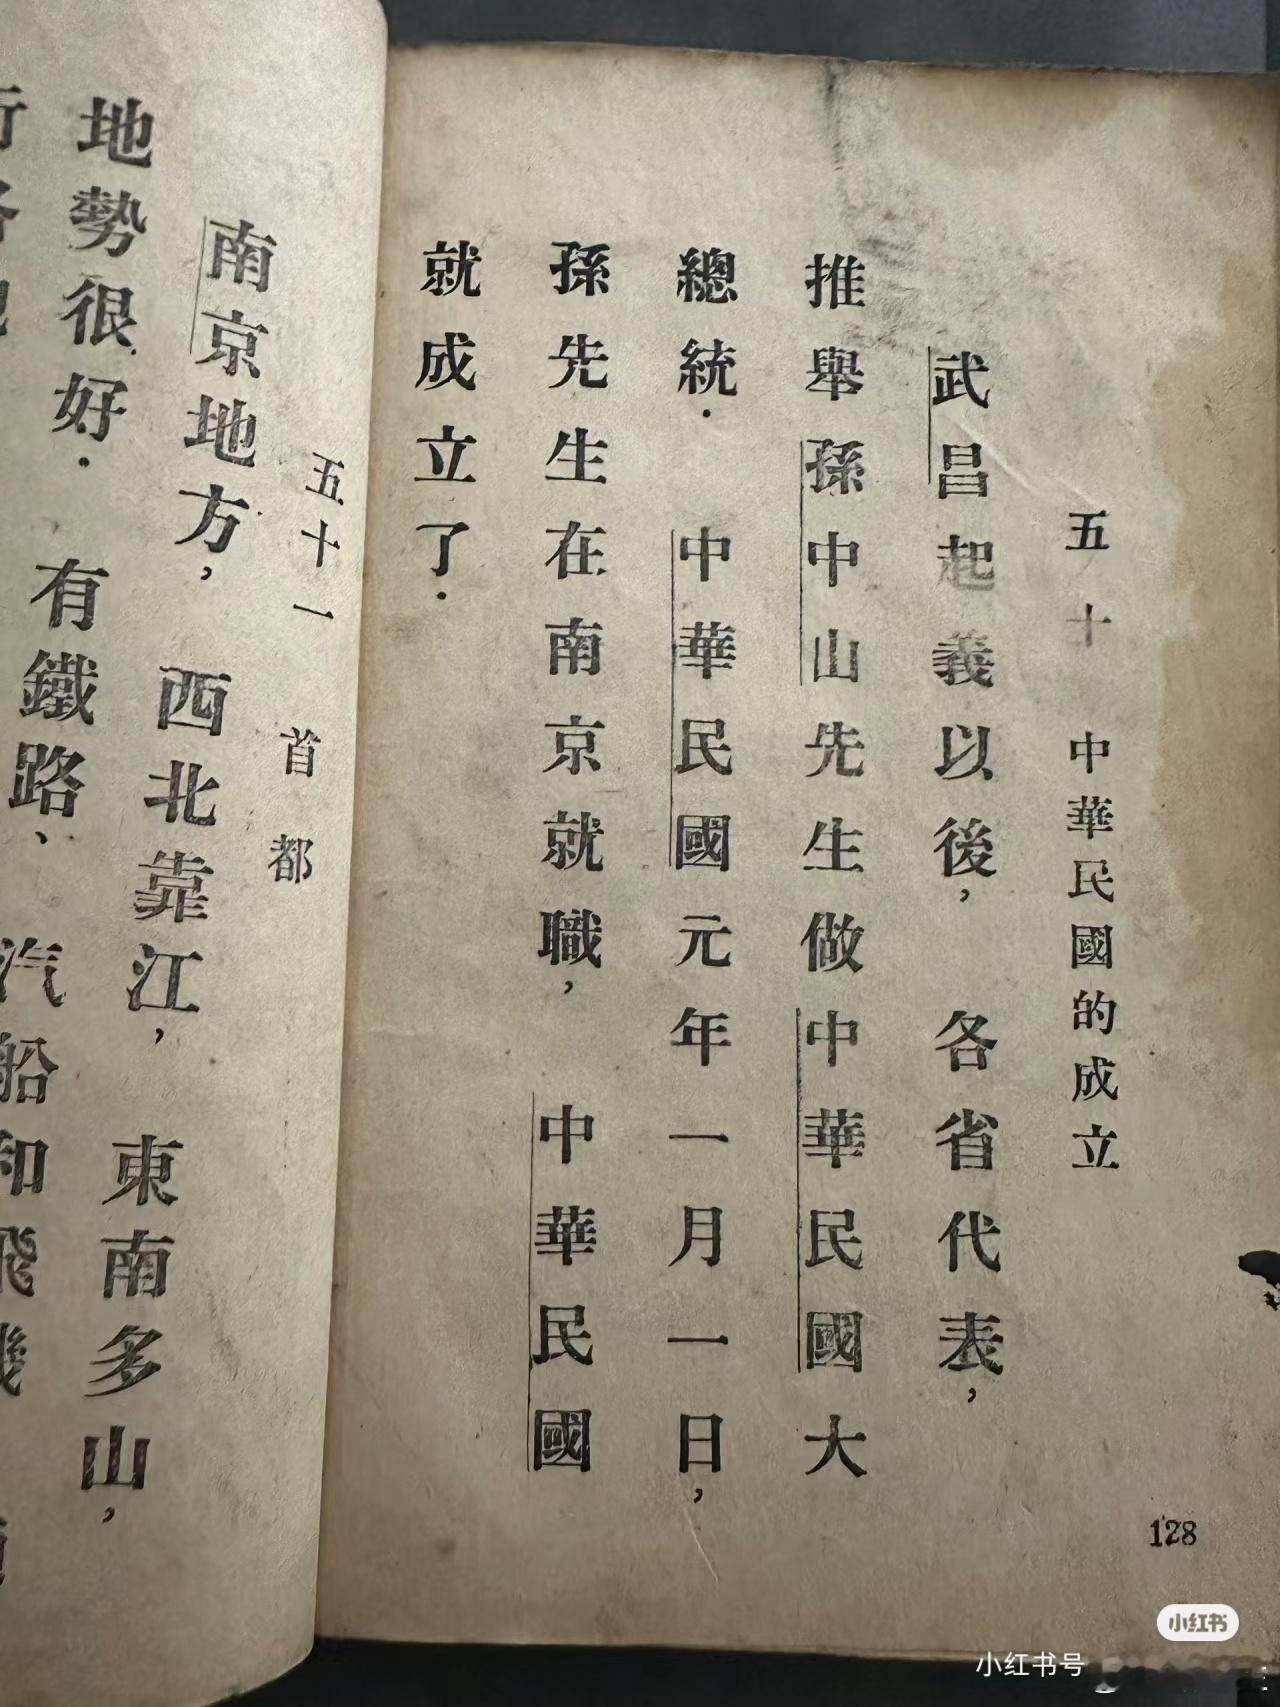 五十　中華民國的成立
武昌起義以後，各省代表，
推舉孫中山先生做中華民國大
總統．中華民國元年一月一日，
孫先生在南京就職，中華民國
就成立了．
128
五十一　首都
南京地方，西北靠江，東南多山，
地勢很好．有鐵路、汽船和飛機
小红书
小红书号